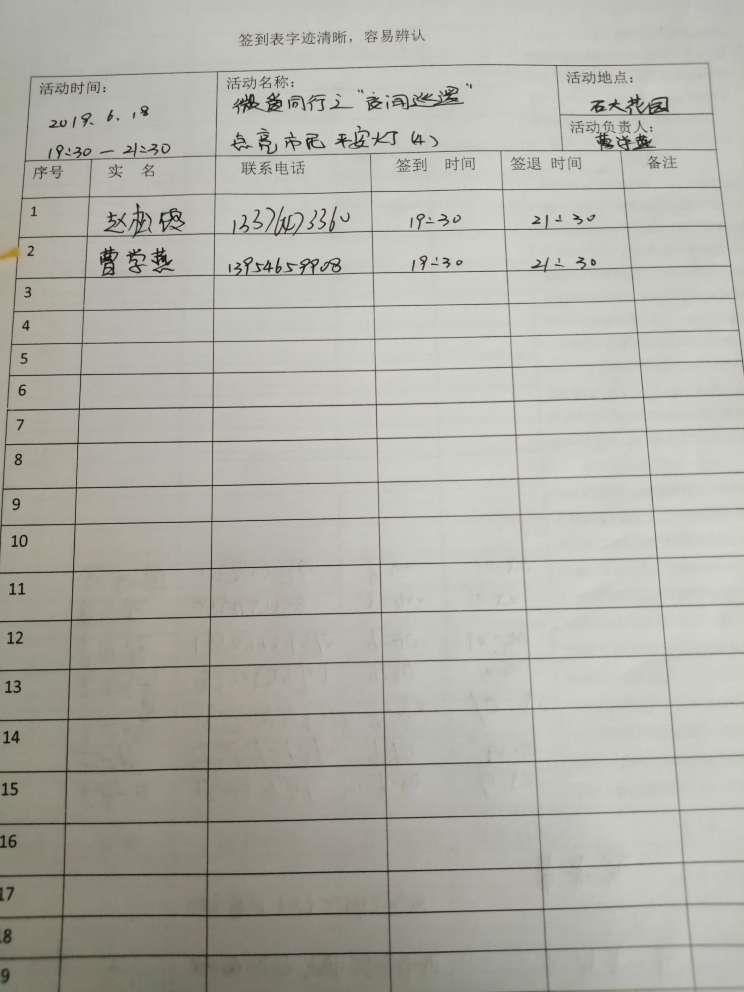 签到表字迹清晰，容易辨认
活动时间：
2019.6.18
19:30 — 21:30
活动名称：
微黄同行之“夜间巡逻”
点亮市民平安灯(4)
活动地点：
石大花园
活动负责人：
曹学燕
序号 实 名 联系电话 签到 时间 签退 时间 备注
1 赵 19:30 21:30
2 曹学燕 13954659908 19:30 21:30
3
4
5
6
7
8
9
10
11
12
13
14
15
16
17
18